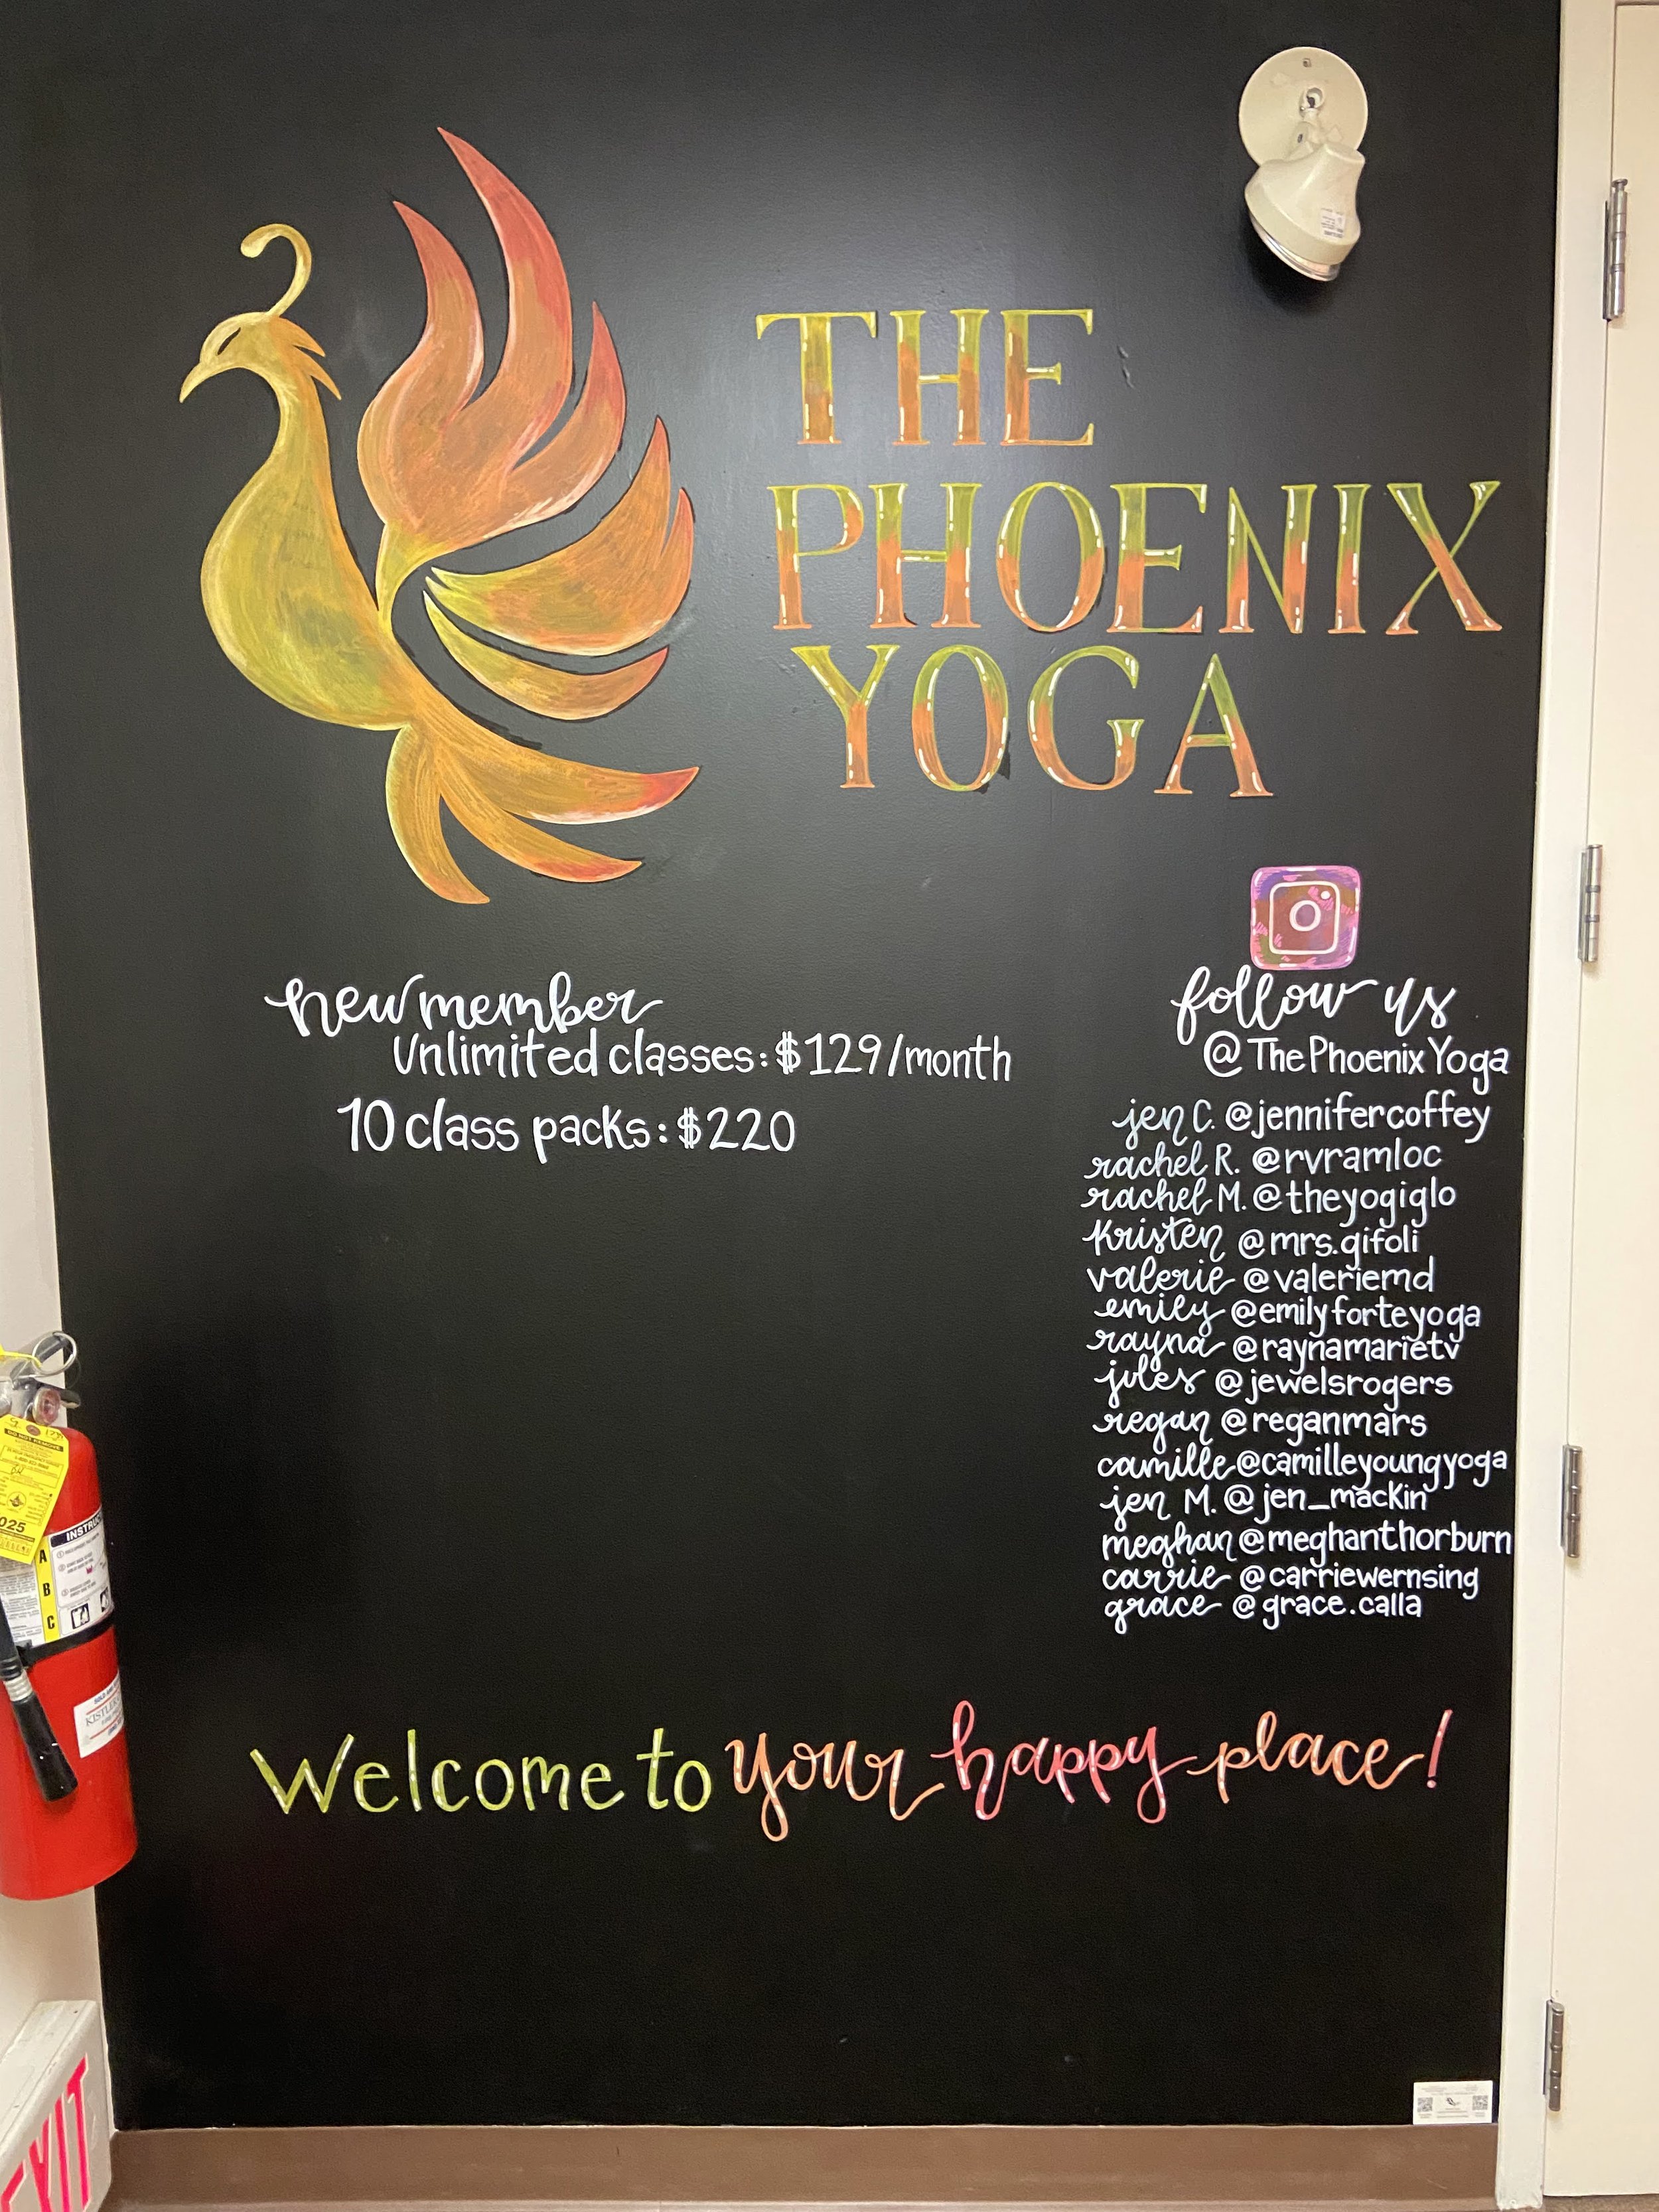 THE
PHOENIX
YOGA
new member
Unlimited classes: $129/month
10 class packs: $220
follow us
@ThePhoenixYoga
jen C. @jennifercoffey
rachel R. @rvramloc
rachel M. @theyogiglo
Kristen @mrs.gifoli
valerie @valeriemd
emily @emilyforteyoga
rayna @raynamarietv
jules @jewelsrogers
regan @reganmars
camille @camilleyoungyoga
jen M. @jen_mackin
meghan @meghanthorburn
carrie @carriewernsing
grace @grace.calla
Welcome to your happy place!
DO NOT REMOVE
025
INSTRUC
A
B
C
EXIT